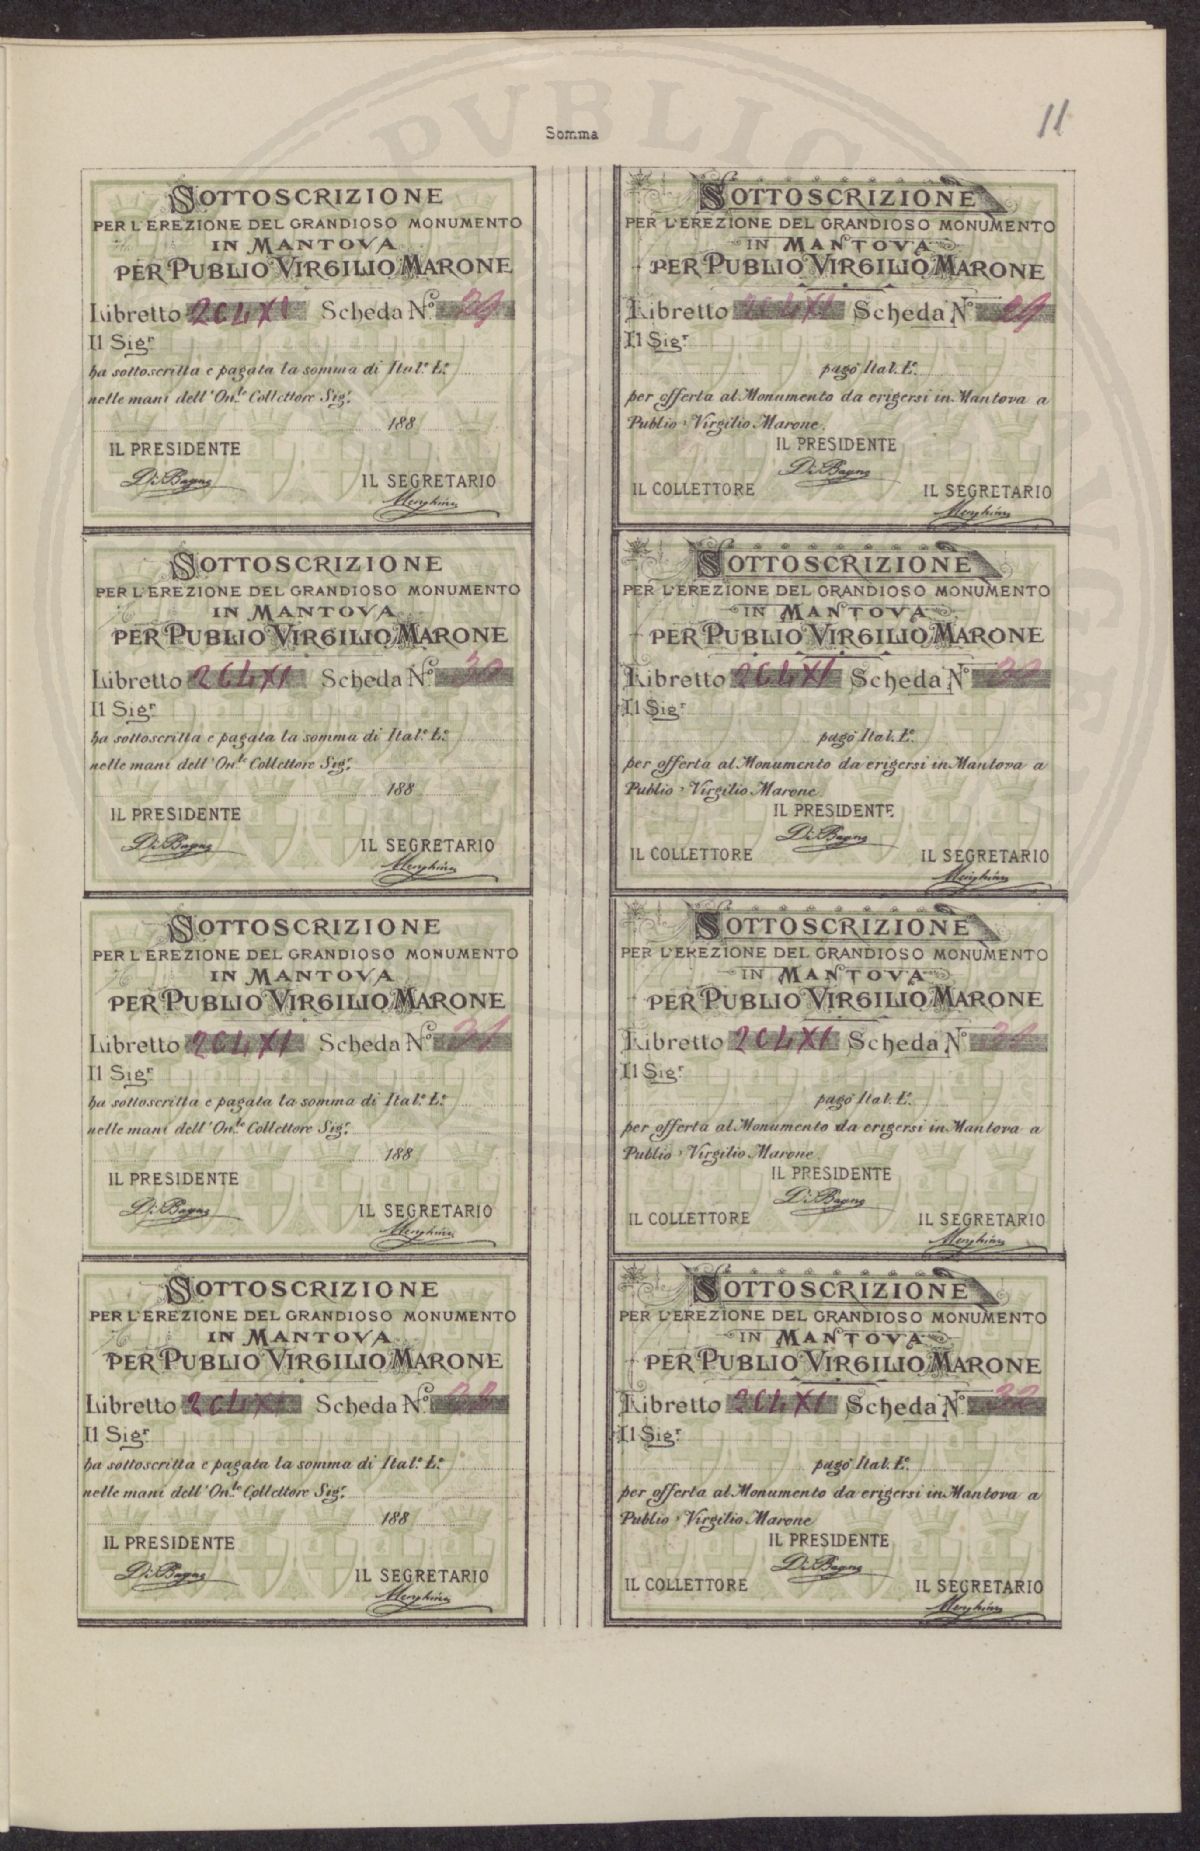 11
Somma
SOTTOSCRIZIONE
PER L'EREZIONE DEL GRANDIOSO MONUMENTO
IN MANTOVA
PER PUBLIO VIRGILIO MARONE
Libretto 264 XI Scheda N.º 29
Il Sig.r
ha sottoscritta e pagata la somma di Ital.e L.e
nelle mani dell'On.le Collettore Sig.r
188
IL PRESIDENTE
Di Bagno
IL SEGRETARIO
Menghini
SOTTOSCRIZIONE
PER L'EREZIONE DEL GRANDIOSO MONUMENTO
IN MANTOVA
PER PUBLIO VIRGILIO MARONE
Libretto 264 XI Scheda N.º 29
Il Sig.r
pagò Ital. L.e
per offerta al Monumento da erigersi in Mantova a
Publio Virgilio Marone.
IL PRESIDENTE
Di Bagno
IL COLLETTORE IL SEGRETARIO
Menghini
SOTTOSCRIZIONE
PER L'EREZIONE DEL GRANDIOSO MONUMENTO
IN MANTOVA
PER PUBLIO VIRGILIO MARONE
Libretto 264 XI Scheda N.º 30
Il Sig.r
ha sottoscritta e pagata la somma di Ital.e L.e
nelle mani dell'On.le Collettore Sig.r
188
IL PRESIDENTE
Di Bagno
IL SEGRETARIO
Menghini
SOTTOSCRIZIONE
PER L'EREZIONE DEL GRANDIOSO MONUMENTO
IN MANTOVA
PER PUBLIO VIRGILIO MARONE
Libretto 264 XI Scheda N.º 30
Il Sig.r
pagò Ital. L.e
per offerta al Monumento da erigersi in Mantova a
Publio Virgilio Marone.
IL PRESIDENTE
Di Bagno
IL COLLETTORE IL SEGRETARIO
Menghini
SOTTOSCRIZIONE
PER L'EREZIONE DEL GRANDIOSO MONUMENTO
IN MANTOVA
PER PUBLIO VIRGILIO MARONE
Libretto 264 XI Scheda N.º 31
Il Sig.r
ha sottoscritta e pagata la somma di Ital.e L.e
nelle mani dell'On.le Collettore Sig.r
188
IL PRESIDENTE
Di Bagno
IL SEGRETARIO
Menghini
SOTTOSCRIZIONE
PER L'EREZIONE DEL GRANDIOSO MONUMENTO
IN MANTOVA
PER PUBLIO VIRGILIO MARONE
Libretto 264 XI Scheda N.º 31
Il Sig.r
pagò Ital. L.e
per offerta al Monumento da erigersi in Mantova a
Publio Virgilio Marone.
IL PRESIDENTE
Di Bagno
IL COLLETTORE IL SEGRETARIO
Menghini
SOTTOSCRIZIONE
PER L'EREZIONE DEL GRANDIOSO MONUMENTO
IN MANTOVA
PER PUBLIO VIRGILIO MARONE
Libretto 264 XI Scheda N.º 32
Il Sig.r
ha sottoscritta e pagata la somma di Ital.e L.e
nelle mani dell'On.le Collettore Sig.r
188
IL PRESIDENTE
Di Bagno
IL SEGRETARIO
Menghini
SOTTOSCRIZIONE
PER L'EREZIONE DEL GRANDIOSO MONUMENTO
IN MANTOVA
PER PUBLIO VIRGILIO MARONE
Libretto 264 XI Scheda N.º 32
Il Sig.r
pagò Ital. L.e
per offerta al Monumento da erigersi in Mantova a
Publio Virgilio Marone
IL PRESIDENTE
Di Bagno
IL COLLETTORE IL SEGRETARIO
Menghini